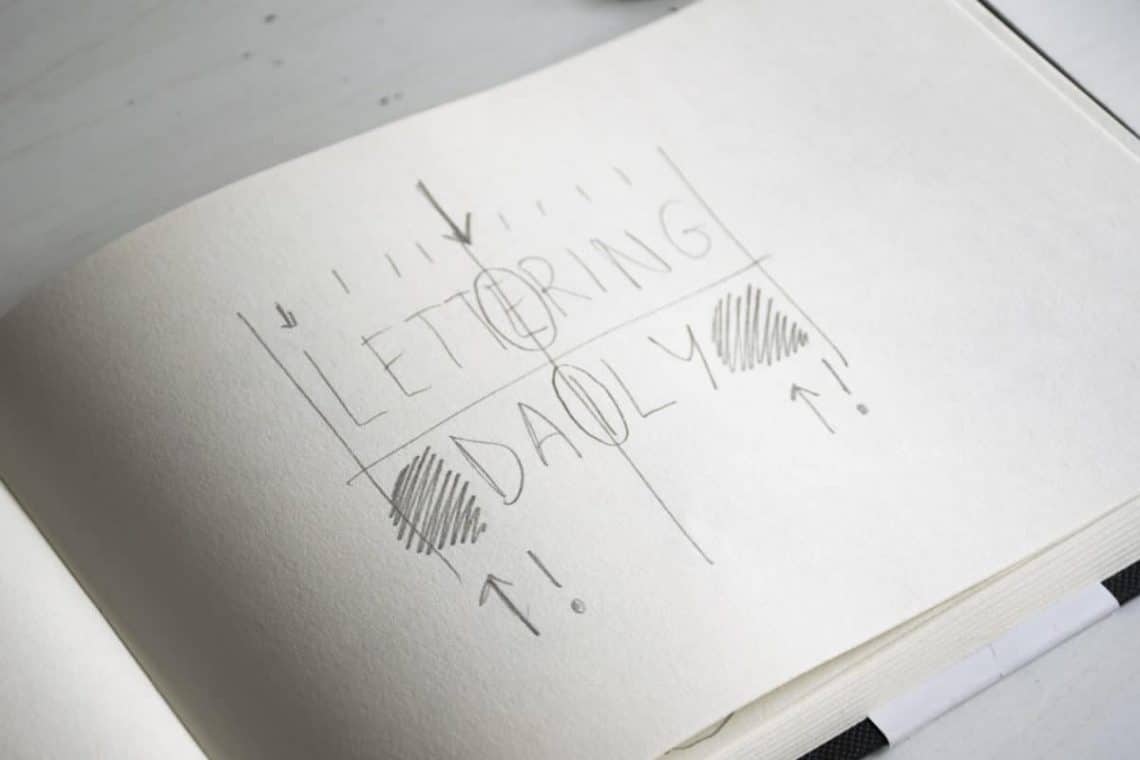 LETTERING
DAILY
! !